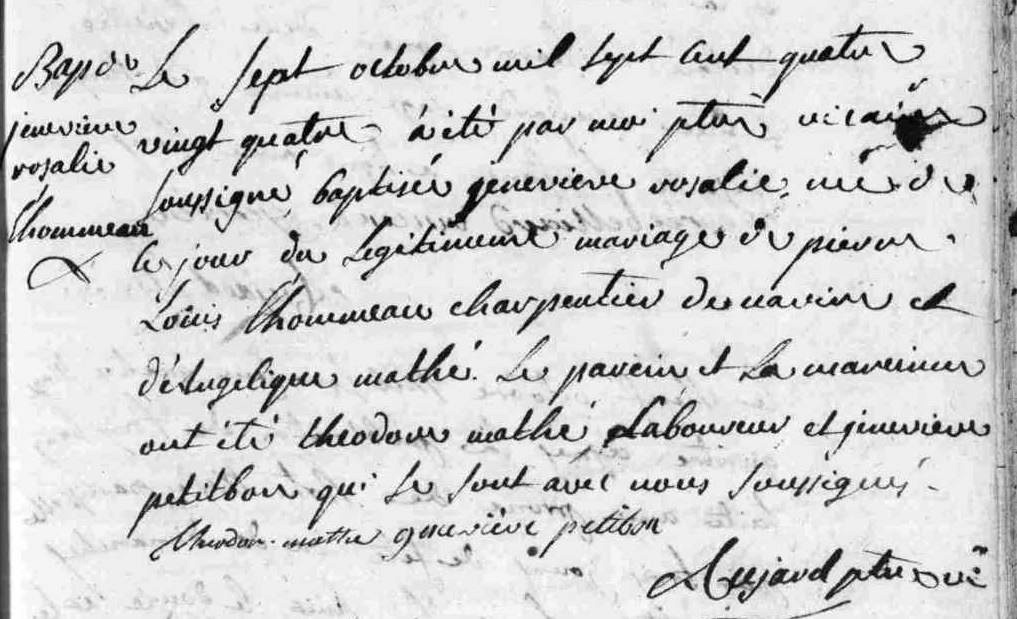 Bap de
jenevieve
rosalie
lhommeau
Le sept octobre mil sept cent quatre
vingt quatre à été par moi ptre vicaire
soussigné baptisée genevieve rosalie née de
ce jour du legitime mariage de pierre
Louis lhommeau charpentier de navire et
d'angelique mathé. Le parein et La mareine
ont été theodore mathé Laboureur et jenevieve
petitbon qui se sont avec nous soussignés.
theodore mathe genevieve petitbon
ptre vic